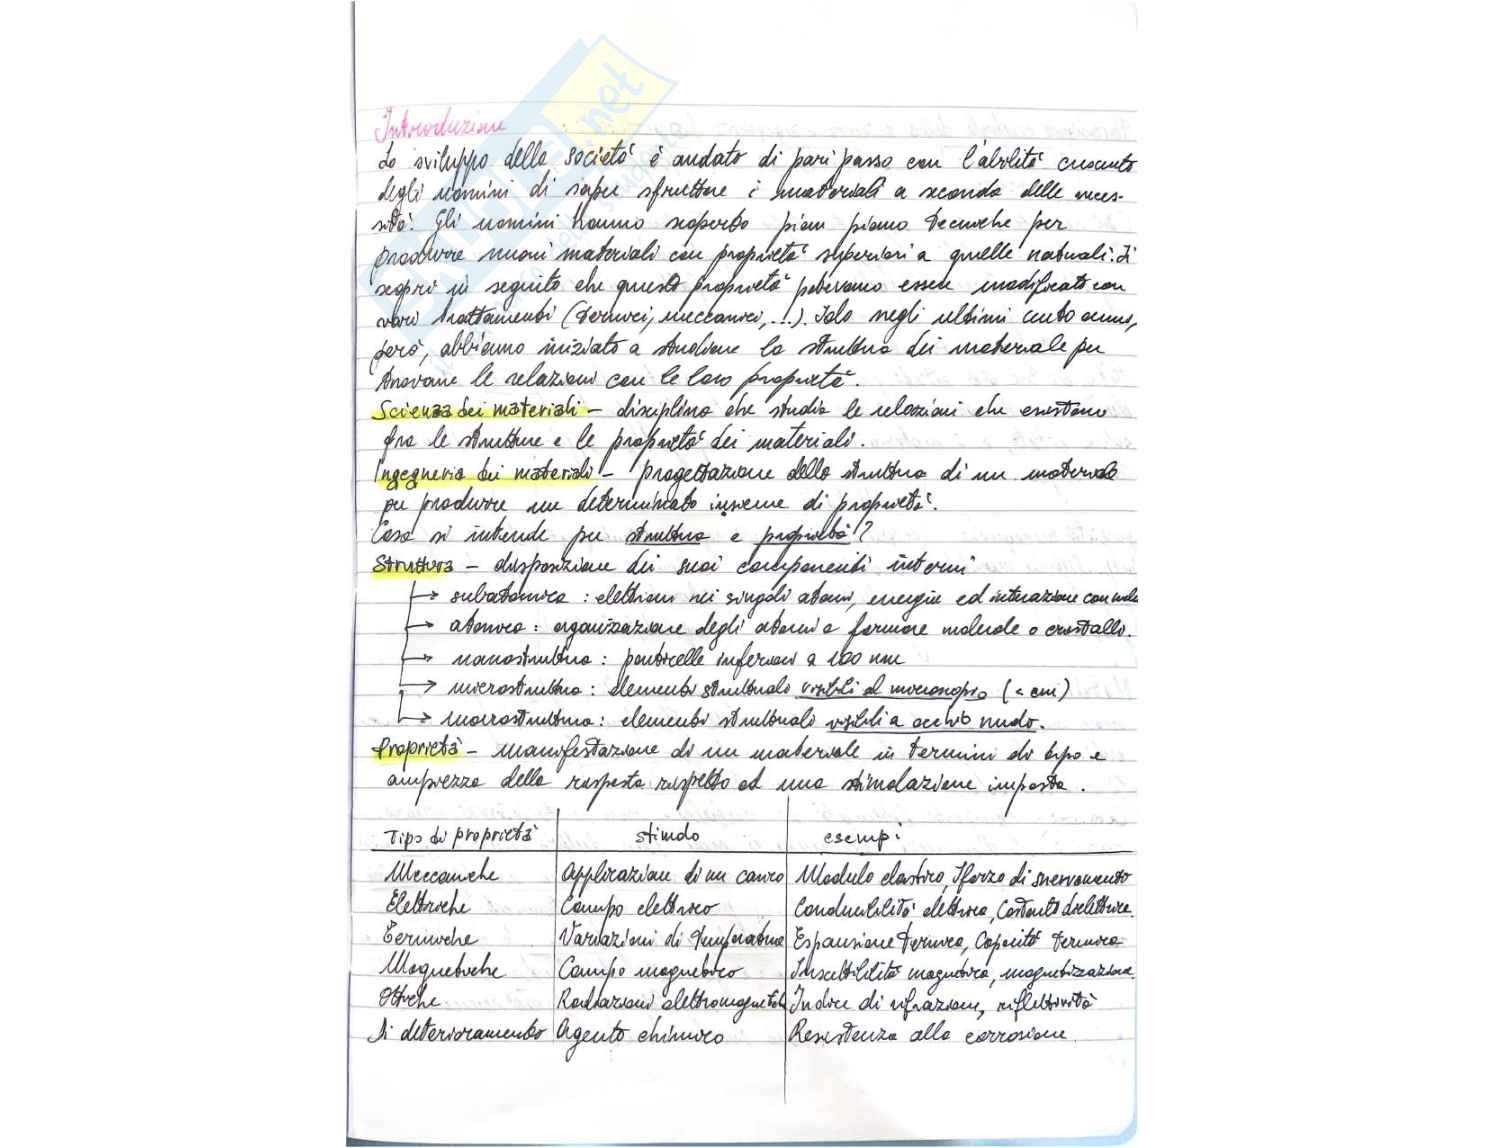 Introduzione
Lo sviluppo della società è andato di pari passo con l'abilità crescente
degli uomini di saper sfruttare i materiali a seconda delle neces-
sità. Gli uomini hanno scoperto pian piano tecniche per
produrre nuovi materiali con proprietà superiori a quelle naturali. Si
scoprì in seguito che queste proprietà potevano essere modificate con
vari trattamenti (termici, meccanici, ...). Solo negli ultimi cento anni,
però, abbiamo iniziato a studiare la struttura dei materiale per
trovare le relazioni con le loro proprietà.
Scienza dei materiali - disciplina che studia le relazioni che esistono
fra le strutture e le proprietà dei materiali.
Ingegneria dei materiali - progettazione della struttura di un materiale
per produrre un determinato insieme di proprietà.
Cosa si intende per struttura e proprietà?
Struttura - disposizione dei suoi componenti interni
→ subatomica : elettroni nei singoli atomi, energie ed interazione con
→ atomica : organizzazione degli atomi a formare molecole o cristallo.
→ nanostruttura : particelle inferiori a 100 nm
→ microstruttura : elementi strutturali visibili al microscopio (< cm)
→ macrostruttura : elementi strutturali visibili a occhio nudo.
Proprietà - manifestazione di un materiale in termini di tipo e
ampiezza della risposta rispetto ad una stimolazione imposta.
Tipo di proprietà stimolo esempi
Meccaniche Applicazione di un carico Modulo elastico, Sforzo di snervamento
Elettriche Campo elettrico Conducibilità elettrica, Costante dielettrica
Termiche Variazioni di temperatura Espansione termica, Capacità termica
Magnetiche Campo magnetico Suscettibilità magnetica, magnetizzazione
Ottiche Radiazioni elettromagnetiche Indice di rifrazione, riflettività
Di deterioramento Agente chimico Resistenza alla corrosione.
.net